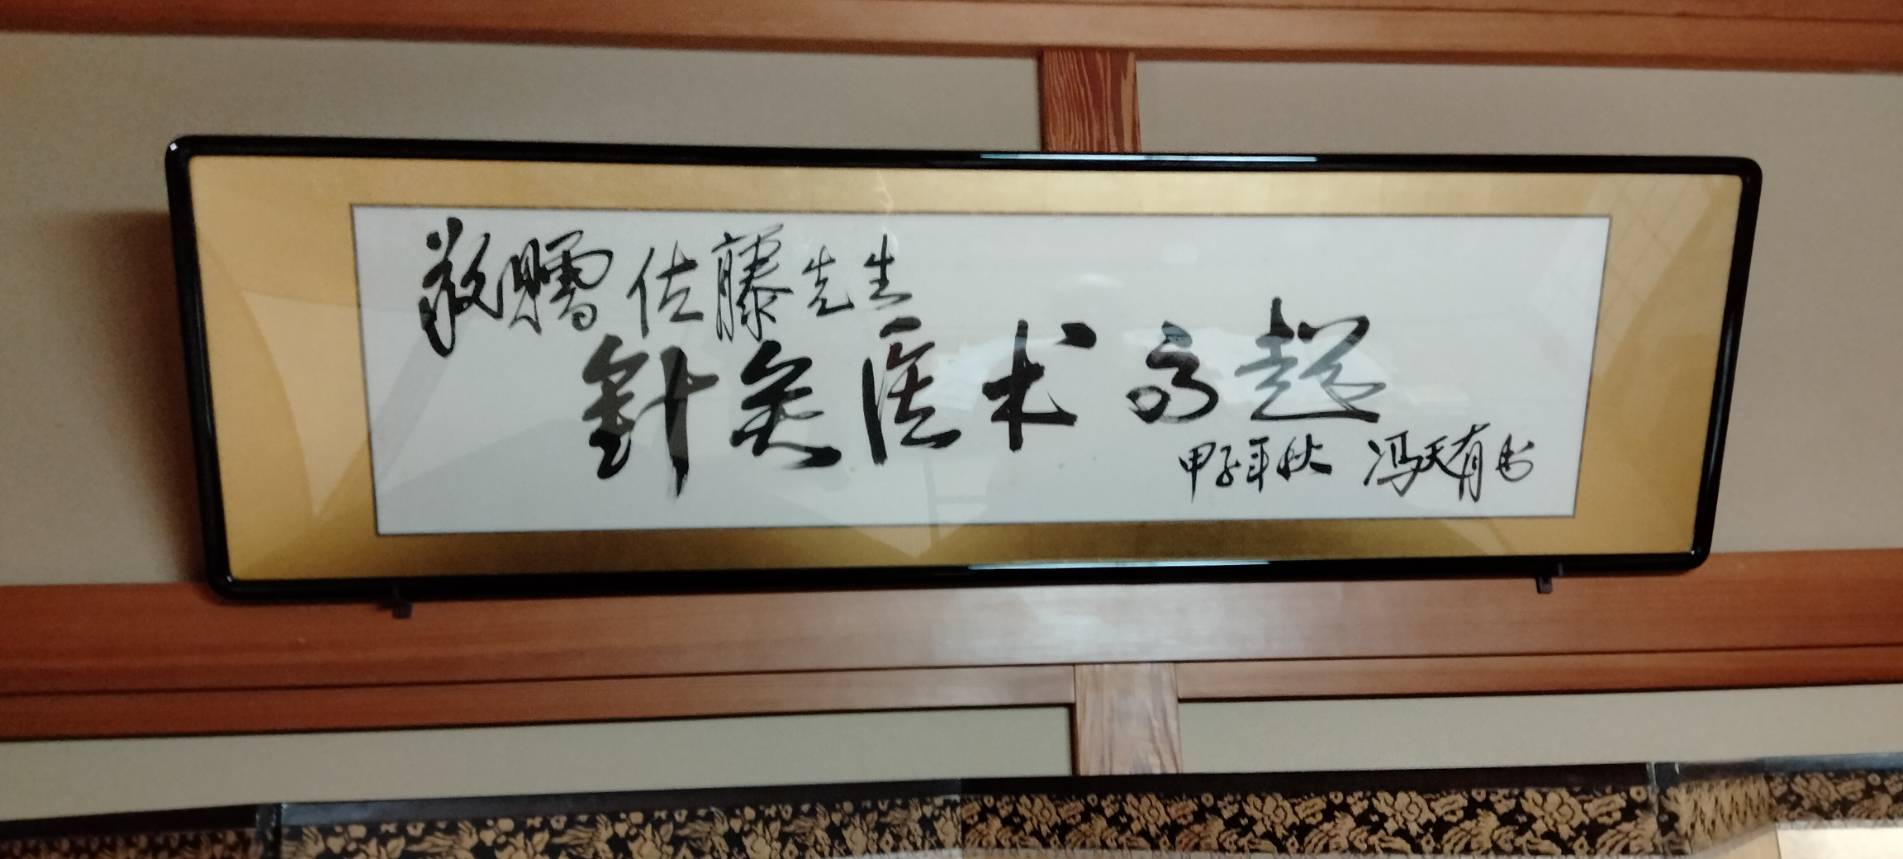 敬赠佐藤先生
針灸医术永超
甲子年秋 冯天有书